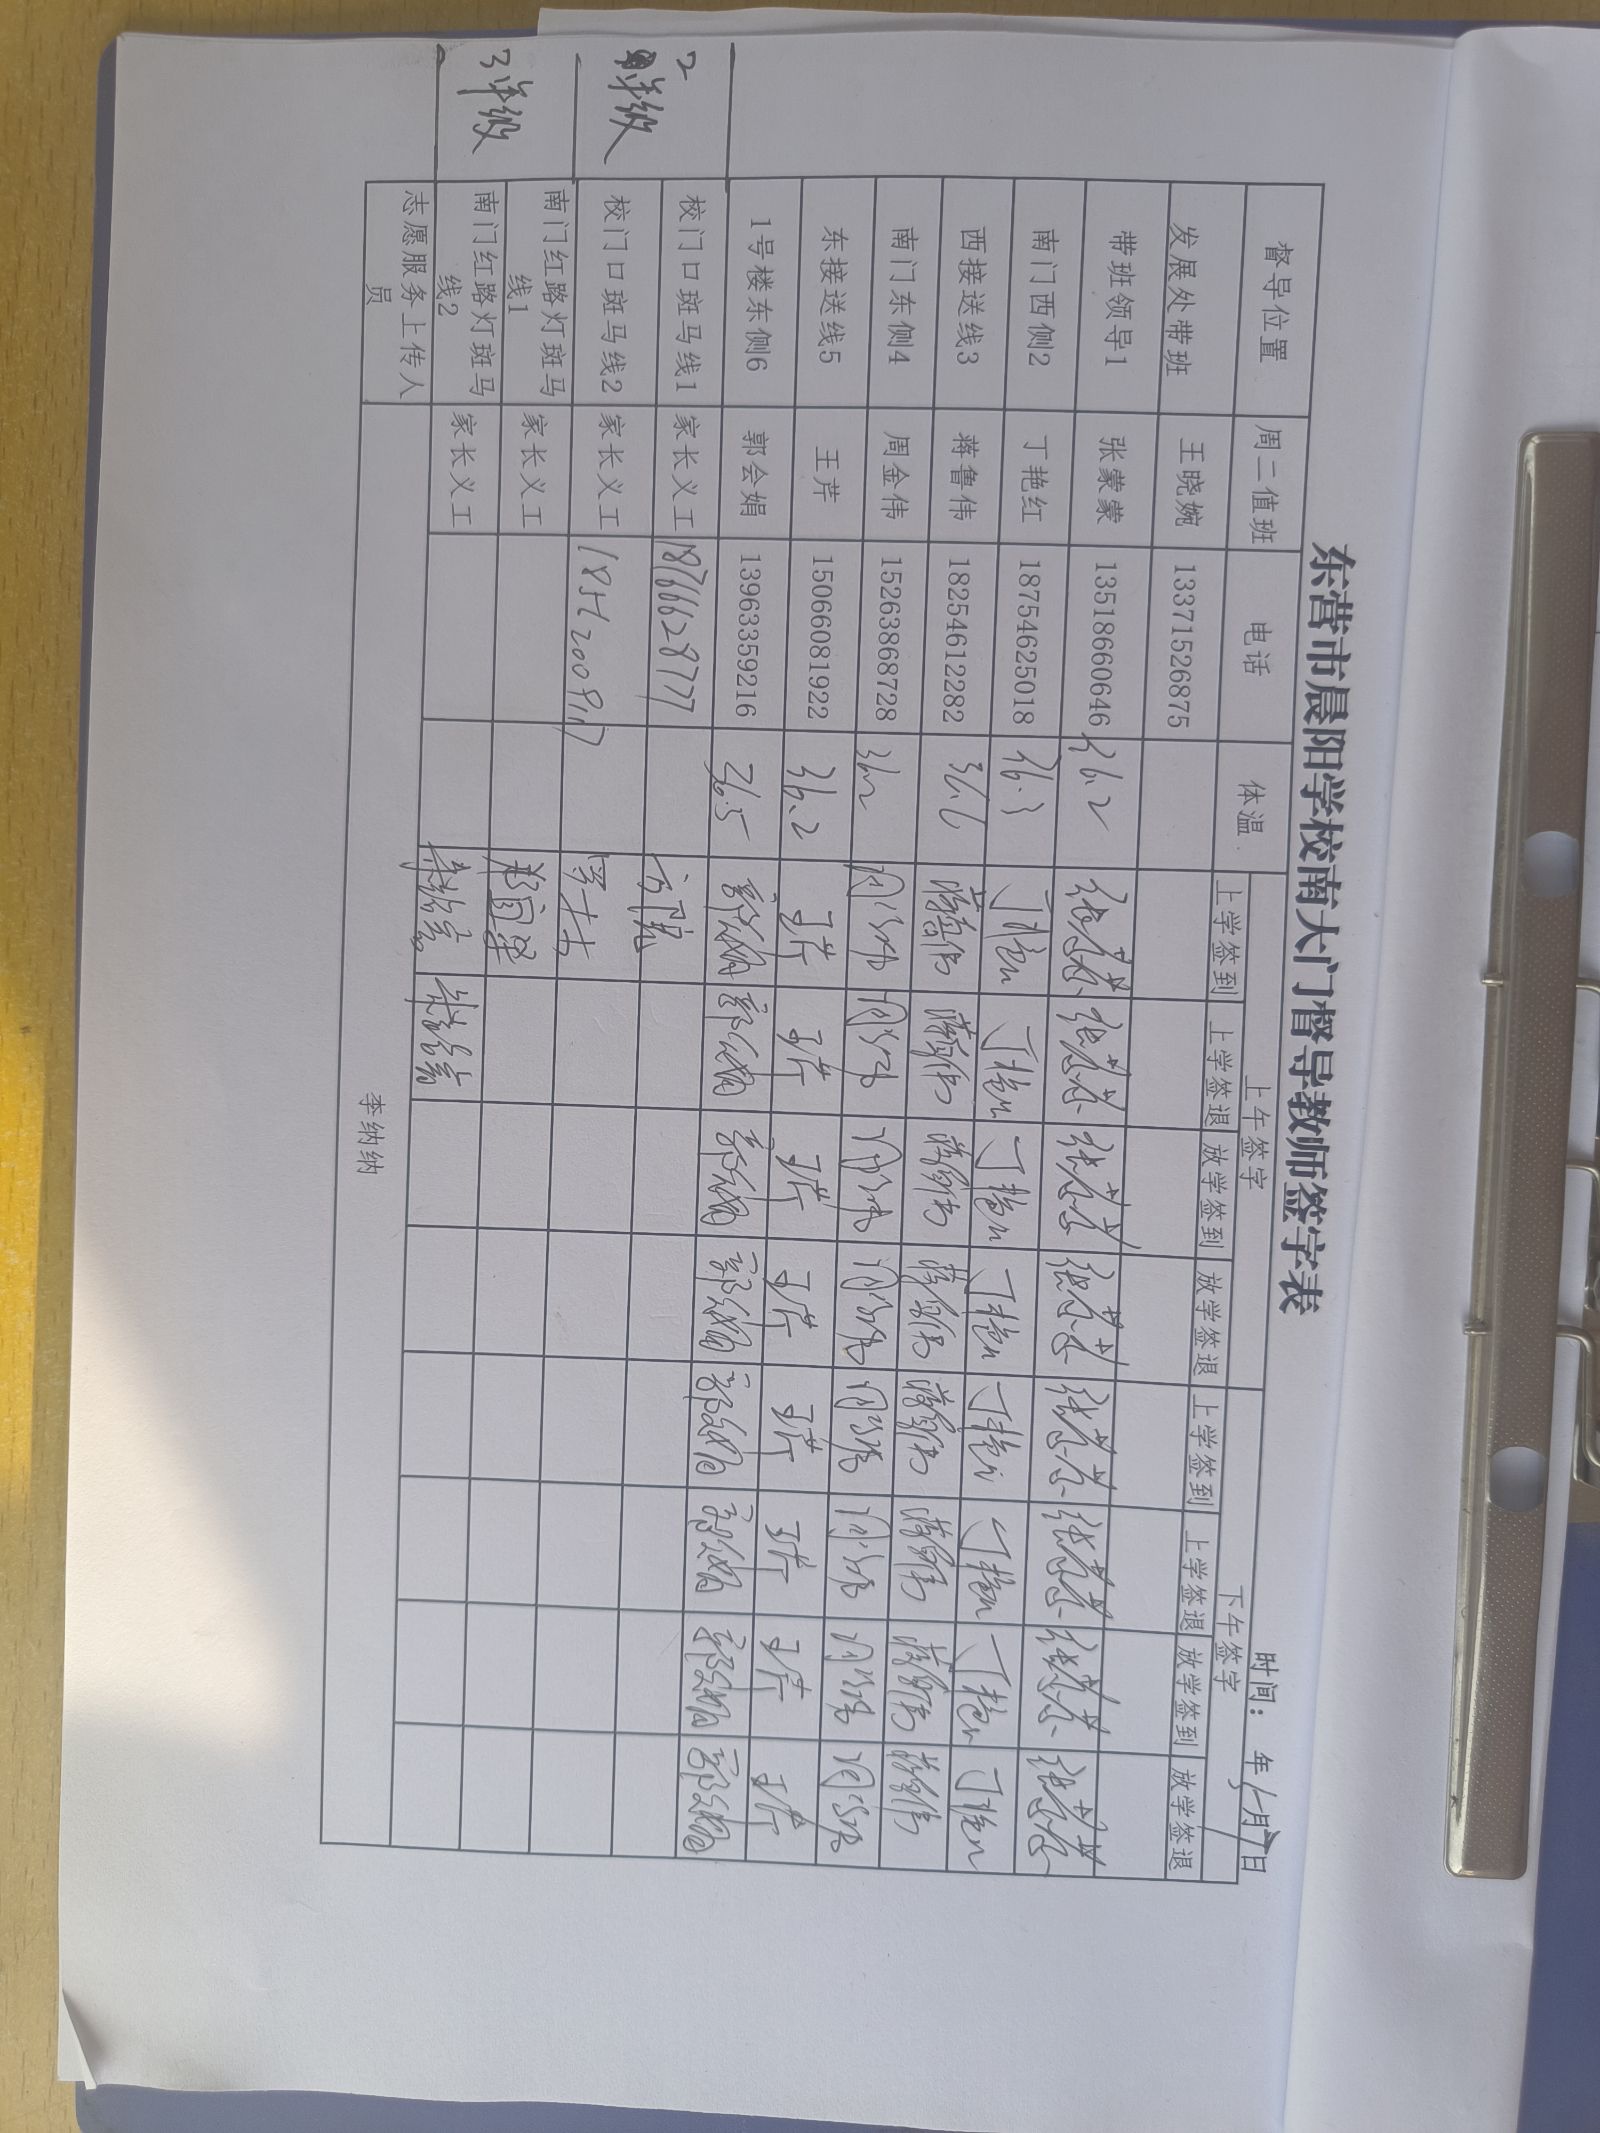 东营市晨阳学校南大门督导教师签字表
时间： 年 月 日
督导位置 周二值班 电话 体温 上午签字 下午签字
上学签到 上学签退 放学签到 放学签退 上学签到 上学签退 放学签到 放学签退
发展处带班 王晓婉 13371526875
带班领导1 张蒙蒙 13518660646 36.2 张蒙蒙 张蒙蒙 张蒙蒙 张蒙蒙 张蒙蒙 张蒙蒙 张蒙蒙 张蒙蒙
南门西侧2 丁艳红 18754625018 36.3 丁艳红 丁艳红 丁艳红 丁艳红 丁艳红 丁艳红 丁艳红 丁艳红
西接送线3 蒋鲁伟 18254612282 36.6 蒋鲁伟 蒋鲁伟 蒋鲁伟 蒋鲁伟 蒋鲁伟 蒋鲁伟 蒋鲁伟 蒋鲁伟
南门东侧4 周金伟 15263868728 36.2 周金伟 周金伟 周金伟 周金伟 周金伟 周金伟 周金伟 周金伟
东接送线5 王芹 15066081922 36.2 王芹 王芹 王芹 王芹 王芹 王芹 王芹 王芹
1号楼东侧6 郭会娟 13963359216 36.5 郭会娟 郭会娟 郭会娟 郭会娟 郭会娟 郭会娟 郭会娟 郭会娟
2年级 校门口斑马线1 家长义工 18766628777
校门口斑马线2 家长义工
3年级 南门红路灯斑马线1 家长义工
南门红路灯斑马线2 家长义工
志愿服务上传人员 李纳纳